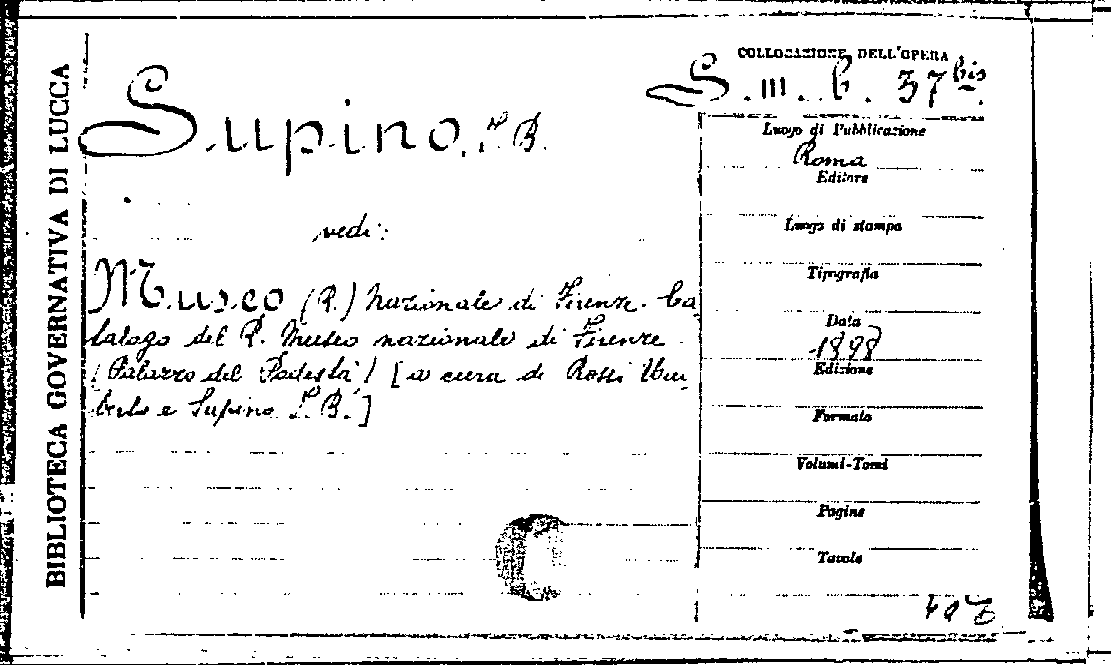 BIBLIOTECA GOVERNATIVA DI LUCCA
COLLOCAZIONE DELL'OPERA
S. III. b. 37 bis.
Supino, I. B.
vedi:
Museo (R.) Nazionale di Firenze. Ca
talogo del R. Museo nazionale di Firenze
(Palazzo del Podestà) [a cura di Rossi Um
berto e Supino I. B.]
Luogo di Pubblicazione
Roma
Editore
Luogo di stampa
Tipografia
Data
1898
Edizione
Formato
Volumi-Tomi
Pagine
Tavole